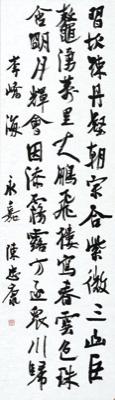 習坎疎丹壑朝宗合紫微三山巨
鼇湧萬里大鵬飛樓寫春雲色珠
含明月輝會因添霧露方逐衆川歸
李嶠海
永嘉陳忠康